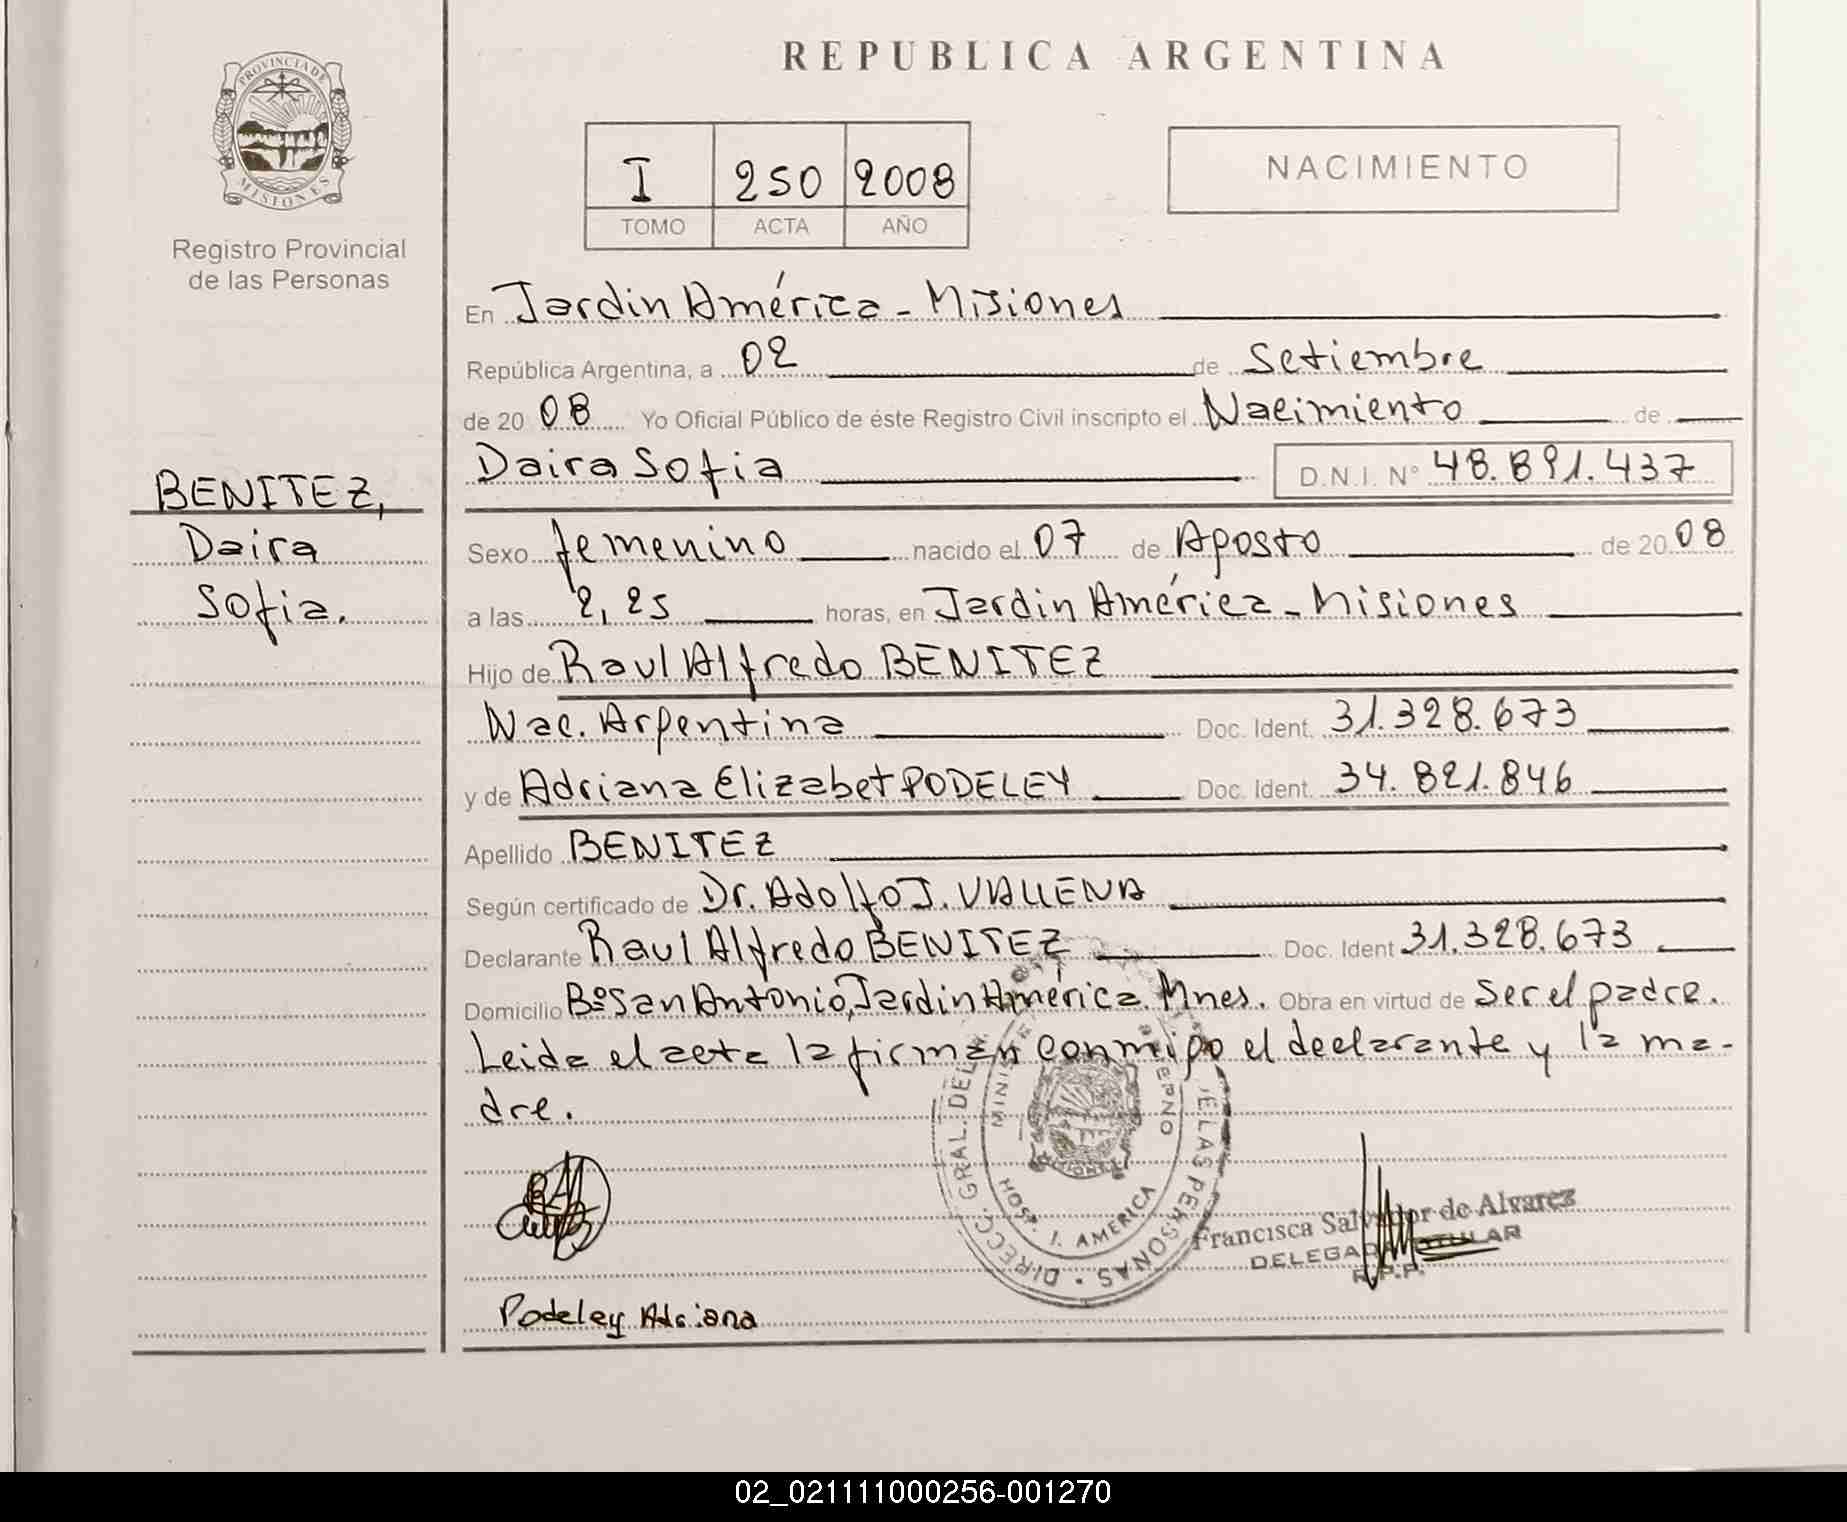 REPUBLICA ARGENTINA
PROVINCIA DE
MISIONES
Registro Provincial
de las Personas
I 250 2008
TOMO ACTA AÑO
NACIMIENTO
BENITEZ,
Daira
Sofia.
En Jardin América - Misiones
República Argentina, a 02 de Setiembre
de 20 08 Yo Oficial Público de éste Registro Civil inscripto el Nacimiento de
Daira Sofia D.N.I. N° 48.891.437
Sexo femenino nacido el 07 de Agosto de 20 08
a las 2,25 horas, en Jardin América - Misiones
Hijo de Raul Alfredo BENITEZ
Nac. Argentina Doc. Ident. 31.328.673
y de Adriana Elizabet PODELEY Doc. Ident. 34.821.846
Apellido BENITEZ
Según certificado de Dr. Adolfo J. VALLENA
Declarante Raul Alfredo BENITEZ Doc. Ident 31.328.673
Domicilio Bº San Antonio, Jardin América. Mnes. Obra en virtud de ser el padre.
Leida el acta la firman conmigo el declarante y la ma-
dre.
DIRECC. GRAL. DEL DE LAS PERSONAS
HOSP. J. AMERICA
Francisca Salvador de Alvarez
DELEGADA TITULAR
R.P.P.
Podeley Adriana
02_021111000256-001270